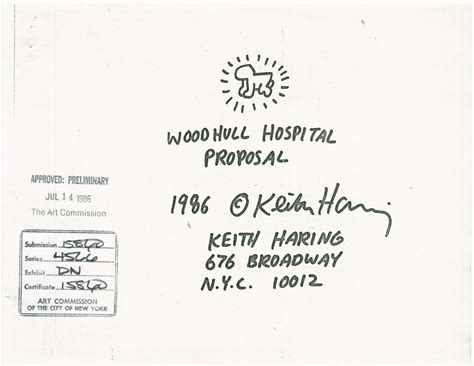 WOODHULL HOSPITAL
PROPOSAL
1986 © Keith Haring
KEITH HARING
676 BROADWAY
N.Y.C. 10012
APPROVED: PRELIMINARY
JUL 14 1986
The Art Commission
Submission 15860
Series 4566
Exhibit DN
Certificate 15860
ART COMMISSION
OF THE CITY OF NEW YORK